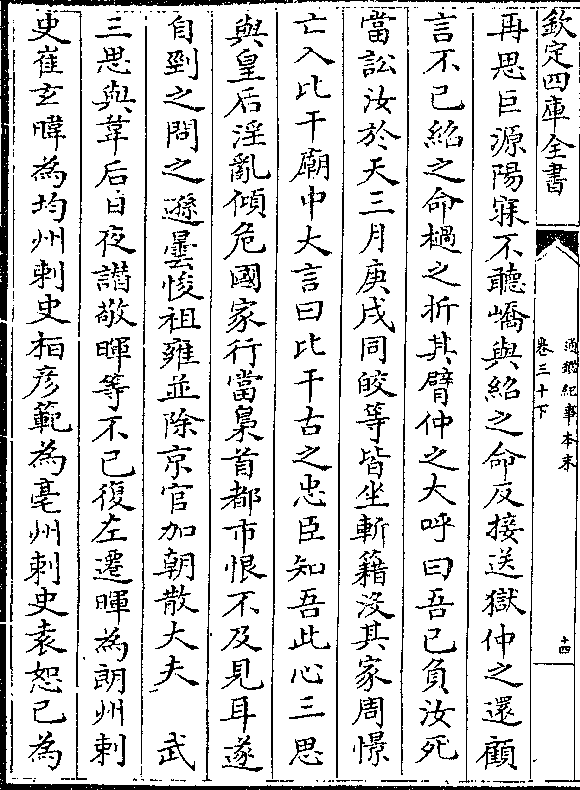 欽定四庫全書
通鑑紀事本末
卷三十下
十四
再思巨源陽寐不聽嶠與紹之命反接送獄仲之還顧
言不已紹之命檛之折其臂仲之大呼曰吾已負汝死
當訟汝於天三月庚戌同皎等皆坐斬籍没其家周憬
亡入比干廟中大言曰比干古之忠臣知吾此心三思
與皇后淫亂傾危國家行當梟首都市恨不及見耳遂
自剄之問之遜曇悛祖雍並除京官加朝散大夫　武
三思與韋后日夜譖敬暉等不已復左遷暉為朗州刺
史崔玄暐為均州刺史桓彦範為亳州刺史袁恕己為